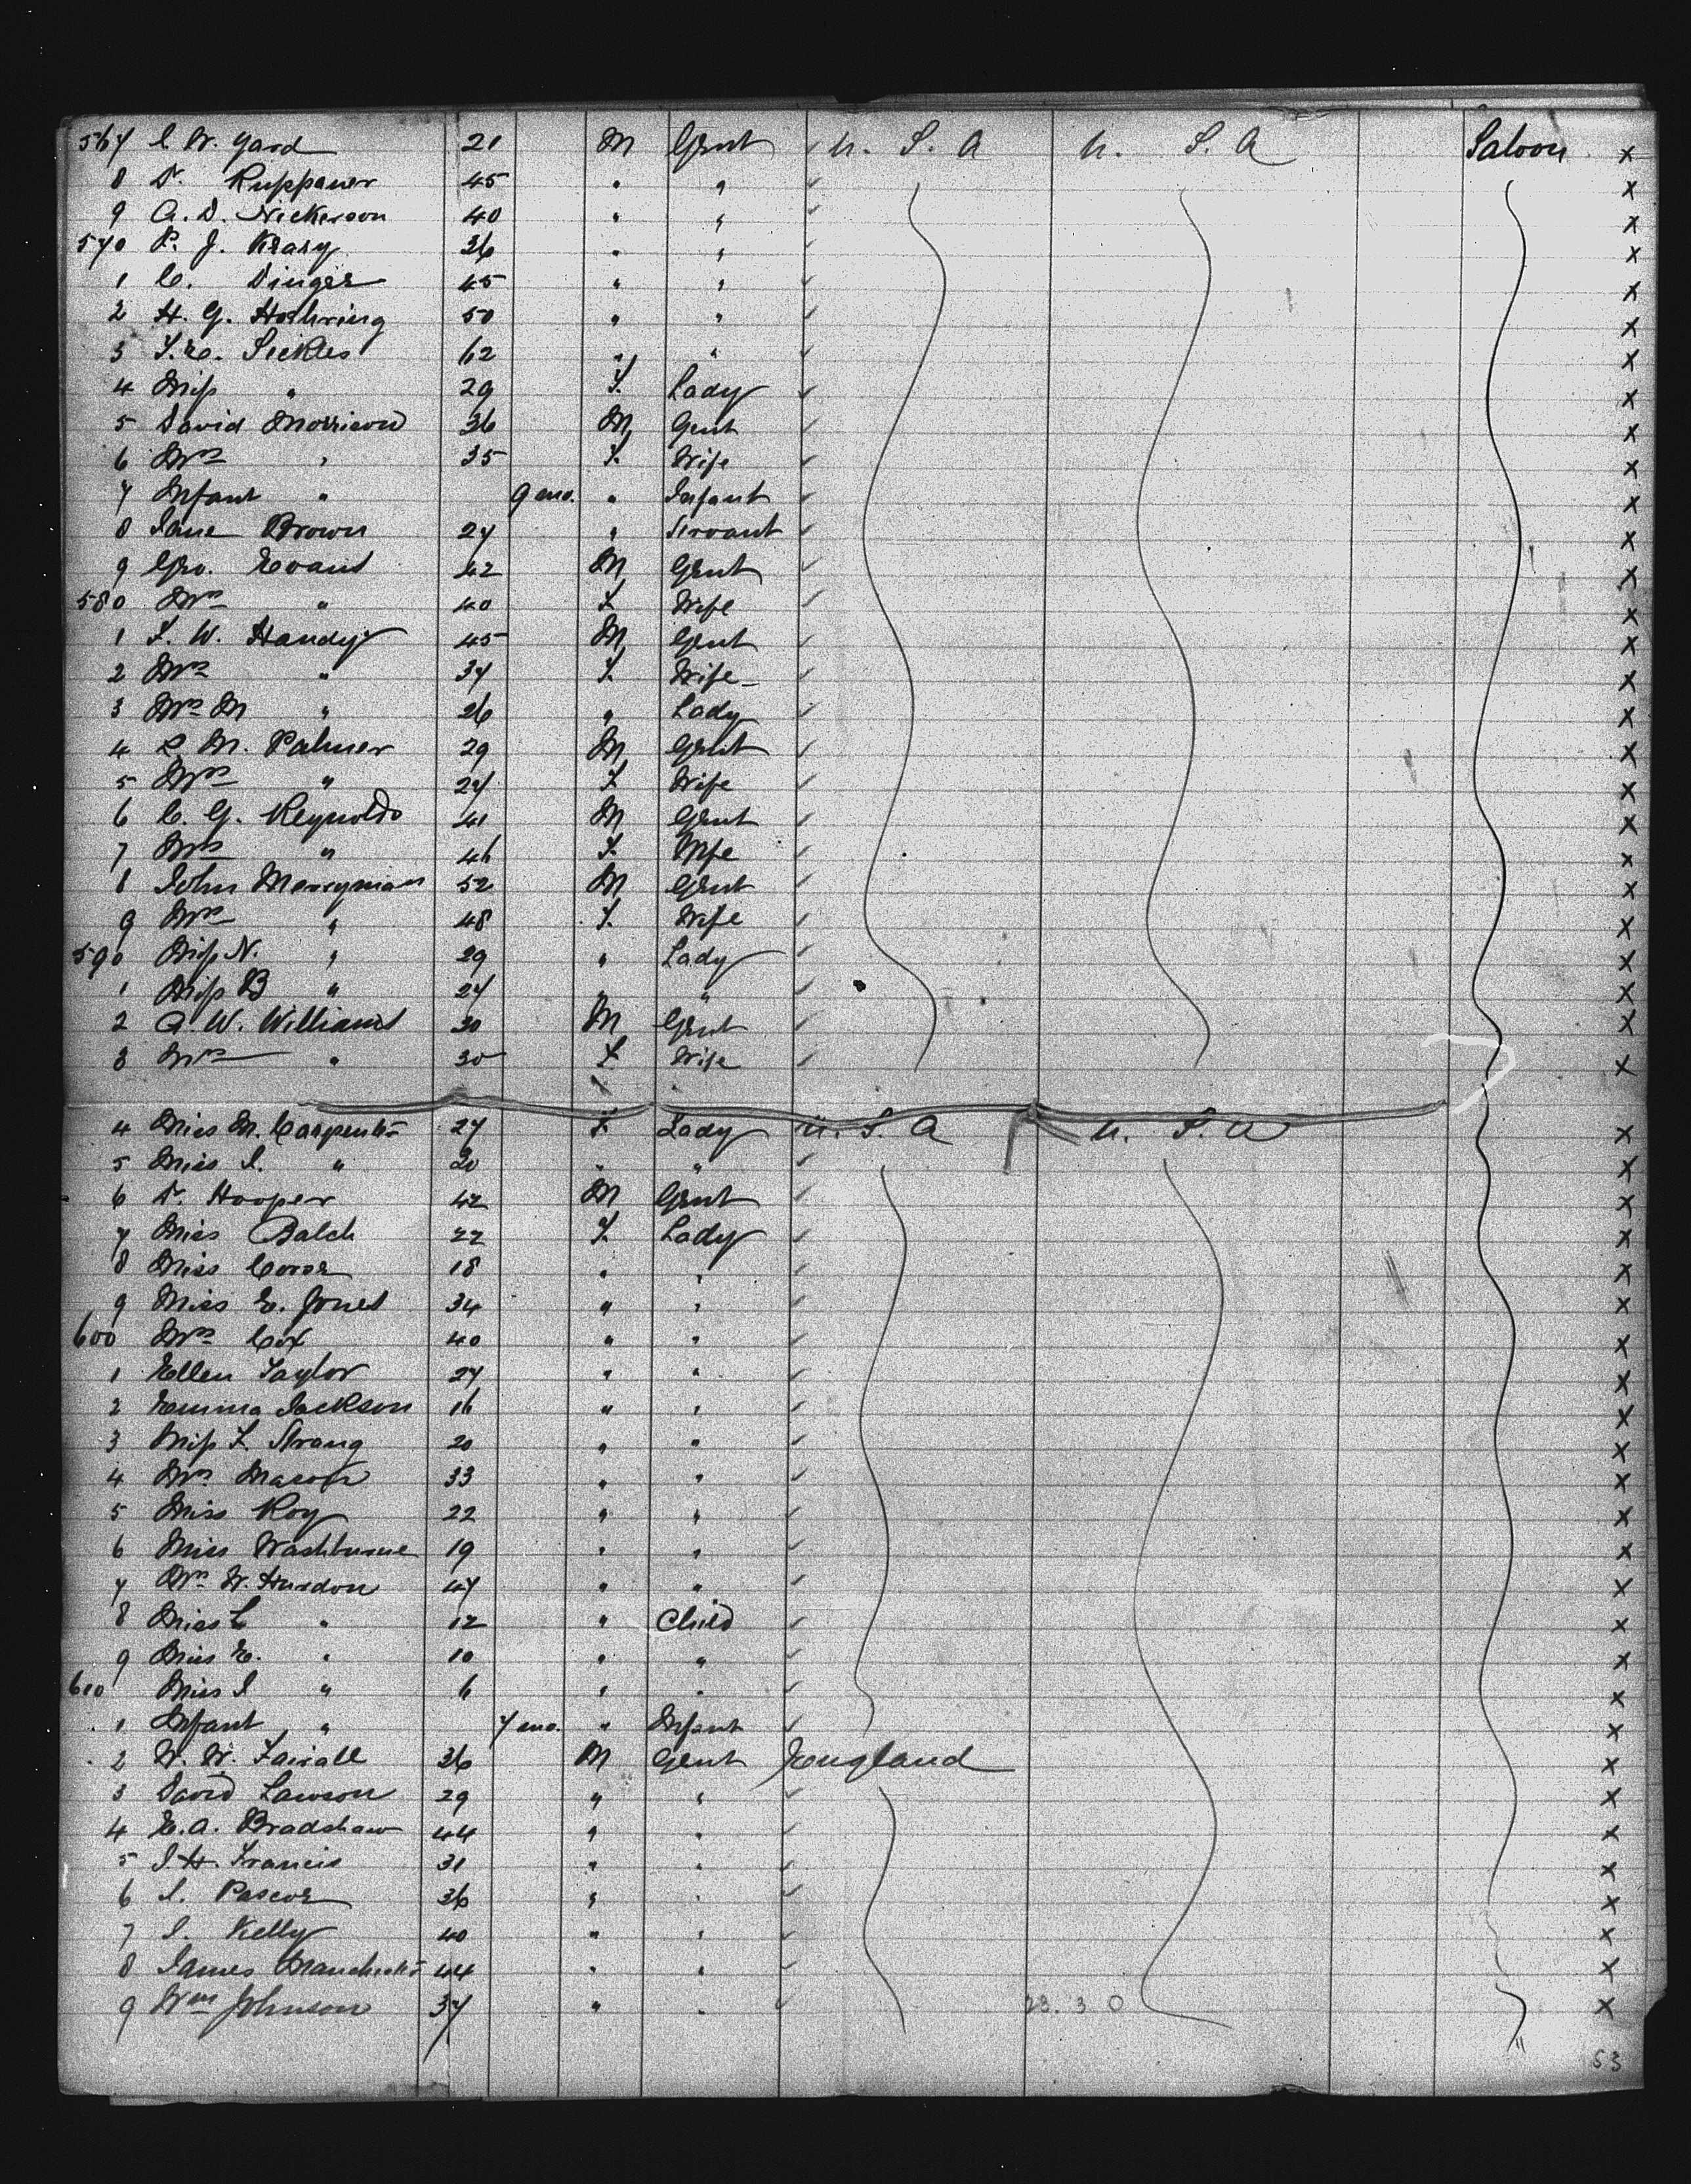 567 C. W. Yard 21 M Gent U. S. A U. S. A Saloon x
8 Dr. Ruppaner 45 " " x
9 A. D. Nickerson 40 " " x
570 P. J. 36 " " x
1 C. Dinger 45 " " x
2 H. G. 50 " " x
3 Sickles 62 " " x
4 Miss " 29 F. Lady x
5 David Morrison 36 M Gent x
6 Mrs " 35 F. Wife x
7 Infant " 9 mo. " Infant x
8 Jane Brown 27 " Servant x
9 Geo. Evans 42 M Gent x
580 Mrs " 40 F Wife x
1 F. W. Handy 45 M Gent x
2 Mrs " 37 F. Wife x
3 Mrs M " 26 " Lady x
4 L M. Palmer 29 M Gent x
5 Mrs " 27 F Wife x
6 C. G. Reynolds 41 M Gent x
7 Mrs " 46 F. Wife x
8 John Merryman 52 M Gent x
9 Mrs " 48 F. Wife x
590 Miss N. " 29 " Lady x
1 Miss B " 27 " " x
2 A. W. Williams 30 M Gent x
3 Mrs " 30 F Wife x
4 Miss M. Carpentr 27 F. Lady U. S. A U. S. A x
5 Miss I. " 20 " " x
6 Dr. Hooper 42 M Gent x
7 Miss Balch 22 F. Lady x
8 Miss 18 " " x
9 Miss E. Jones 34 " " x
600 Mrs Cox 40 " " x
1 Ellen Taylor 27 " " x
2 Emma Jackson 16 " " x
3 Miss F. Strang 20 " " x
4 Mrs. Mason 33 " " x
5 Miss Roy 22 " " x
6 Miss Washburne 19 " " x
7 Mrs W. Hurdon 47 " " x
8 Miss L " 12 " Child x
9 Miss E. " 10 " " x
610 Miss I " 6 " " x
1 Infant " 7 mo. " Infant x
2 W. W. Fairall 36 M Gent England x
3 David Lawson 29 " " x
4 E. A. Bradshaw 44 " " x
5 J. H. Francis 31 " " x
6 J. Pascoe 36 " " x
7 J. Kelly 40 " " x
8 James Manchestr 44 " " x
9 Wm Johnson 37 " " 23. 3 0 x
53